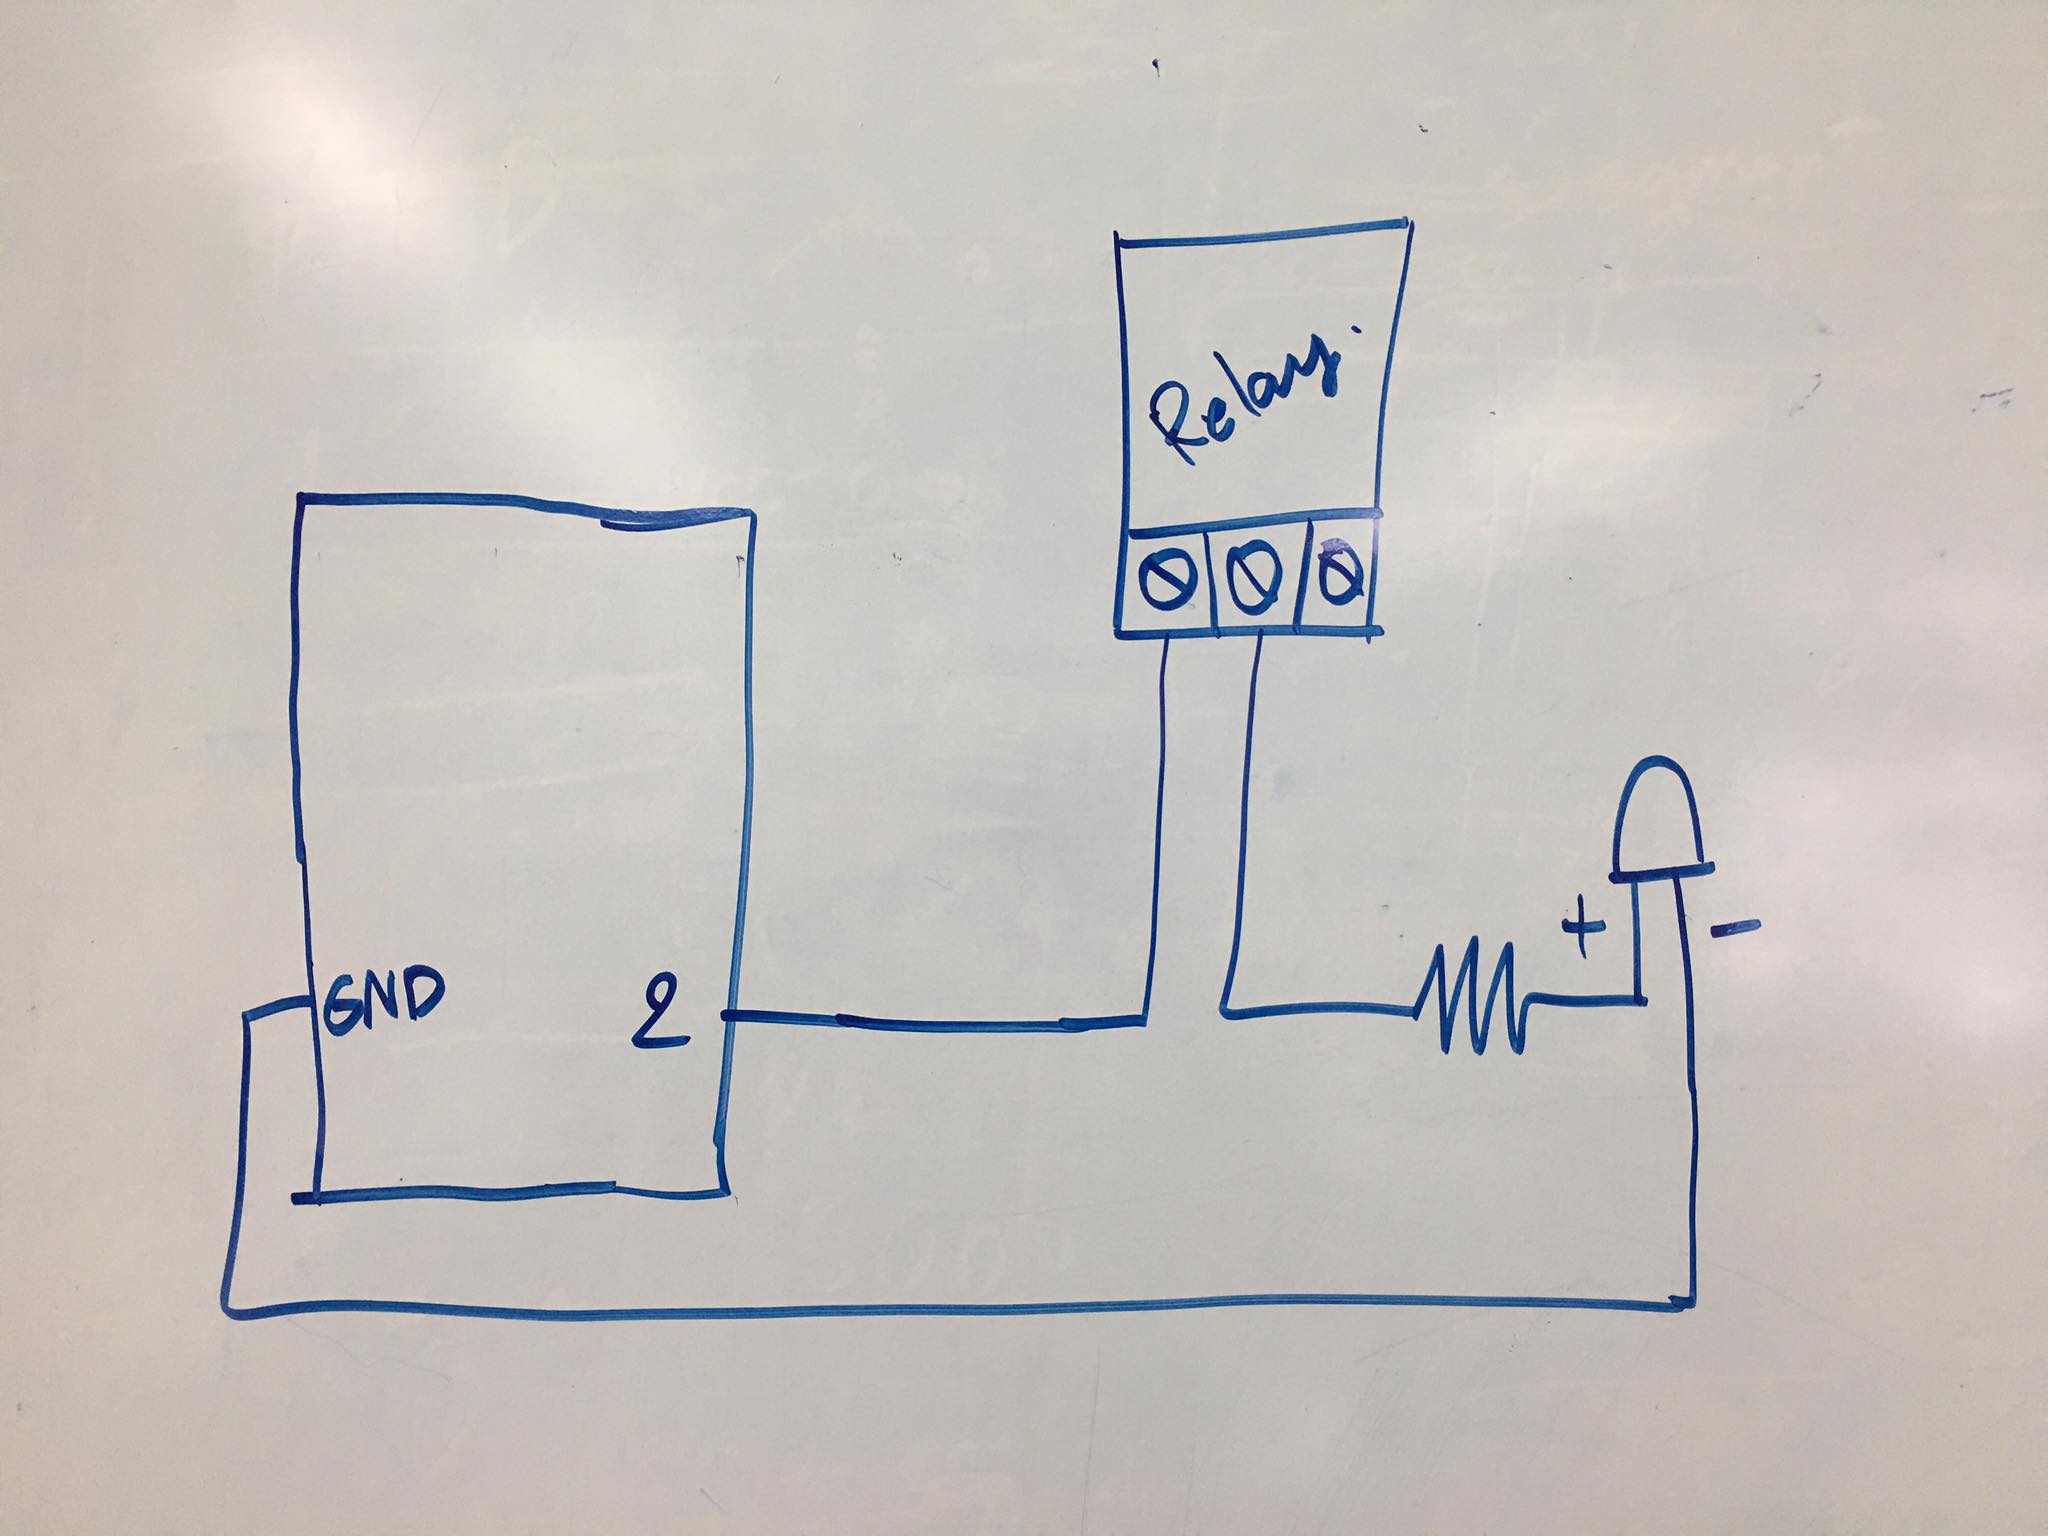 Relay.
GND
2
+
-